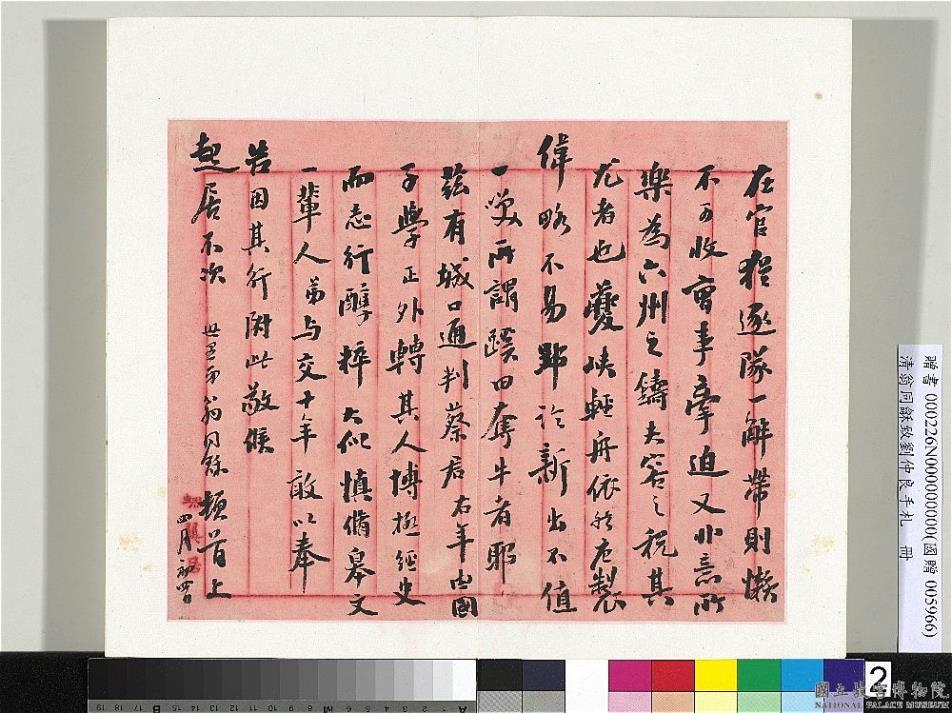 在官猶逐隊一解帶則懶
不可收會事牽迫又非意所
樂為六州之鑄大容之稅其
尤者也夔峽輕舟依然危製
偉略不易郢於新出不值
一笑所謂蹊田奪牛者耶
茲有城口通判蔡君右年由國
子學正外轉其人博極經史
而志行醇粹大似慎脩皋文
一輩人弟與交十年敢以奉
告因其行附此敬候
起居不次 世愚弟翁同龢頓首上
四月初四
贈書 000226N000000000(國贈 005966)
清翁同龢致劉仲良手札 冊
2
國立故宮博物院
NATIONAL PALACE MUSEUM